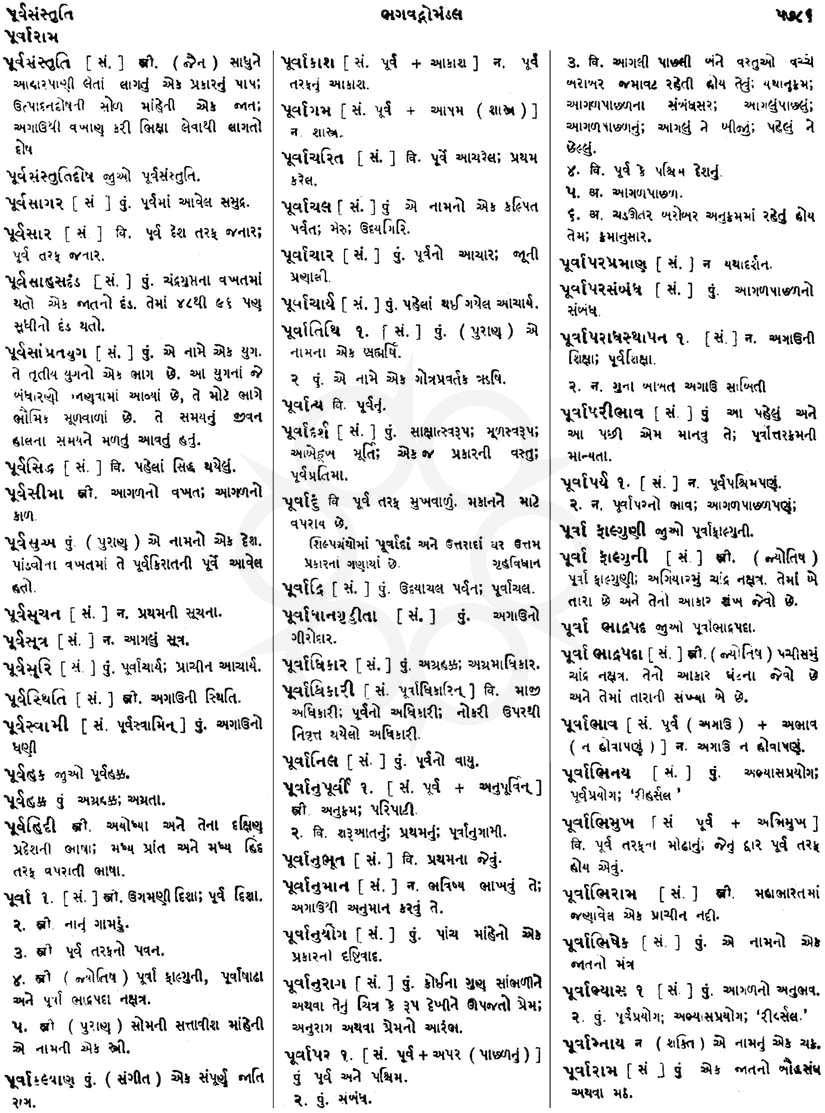 પૂર્વસંસ્તુતિ
ભગવદ્ગોમંડલ
૫૭૮૬
પૂર્વારામ
પૂર્વસંસ્તુતિ [ સં. ] સ્ત્રી. (જૈન) સાધુને
આહારપાણી લેતાં લાગતું એક પ્રકારનું પાપ;
ઉત્પાદનદોષની સોળ માંહેની એક જાત;
અગાઉથી વખાણ કરી ભિક્ષા લેવાથી લાગતો
દોષ
પૂર્વસંસ્તુતિદોષ જુઓ પૂર્વસંસ્તુતિ.
પૂર્વસાગર [ સં ] પું. પૂર્વમાં આવેલ સમુદ્ર.
પૂર્વસાર [ સં ] વિ. પૂર્વ દેશ તરફ જનાર;
પૂર્વ તરફ જનાર.
પૂર્વસાહસદંડ [ સં. ] પું. ચંદ્રગુપ્તના વખતમાં
થતો એક જાતનો દંડ. તેમાં ૪૮થી ૯૬ પણ
સુધીનો દંડ થતો.
પૂર્વસાંપ્રતયુગ [ સં. ] પું. એ નામે એક યુગ.
તે તૃતીય યુગનો એક ભાગ છે. આ યુગનાં જે
બંધારણો જાણવામાં આવ્યાં છે, તે મોટે ભાગે
ભૌમિક મૂળવાળાં છે. તે સમયનું જીવન
હાલના સમયને મળતું આવતું હતું.
પૂર્વસિદ્ધ [ સં. ] વિ. પહેલાં સિદ્ધ થયેલું.
પૂર્વસીમા સ્ત્રી. આગળનો વખત; આગળનો
કાળ
પૂર્વસુખ પું. ( પુરાણ ) એ નામનો એક દેશ.
પાંડવોના વખતમાં તે પૂર્વકિરાતની પૂર્વે આવેલ
હતો.
પૂર્વસૂચન [ સં. ] ન. પ્રથમની સૂચના.
પૂર્વસૂત્ર [ સં. ] ન. આગલું સૂત્ર.
પૂર્વસૂરિ [ સં. ] પું. પૂર્વાચાર્ય; પ્રાચીન આચાર્ય.
પૂર્વસ્થિતિ [ સં. ] સ્ત્રી. અગાઉની સ્થિતિ.
પૂર્વસ્વામી [ સં. પૂર્વસ્વામિન્ ] પું. અગાઉનો
ધણી
પૂર્વહક જુઓ પૂર્વહક્ક.
પૂર્વહક્ક પું અગ્રહક્ક; અગ્રતા.
પૂર્વહિંદી સ્ત્રી. અયોધ્યા અને તેના દક્ષિણ
પ્રદેશની ભાષા; મધ્ય પ્રાંત અને મધ્ય હિંદ
તરફ વપરાતી ભાષા.
પૂર્વા ૧. [ સં. ] સ્ત્રી. ઉગમણી દિશા; પૂર્વ દિશા.
૨. સ્ત્રી. નાનું ગામડું.
૩. સ્ત્રી પૂર્વ તરફનો પવન.
૪. સ્ત્રી ( જ્યોતિષ ) પૂર્વા ફાલ્ગુની, પૂર્વાષાઢા
અને પૂર્વા ભાદ્રપદા નક્ષત્ર.
૫. સ્ત્રી ( પુરાણ ) સોમની સત્તાવીશ માંહેની
એ નામની એક સ્ત્રી.
પૂર્વાકલ્યાણ પું. ( સંગીત ) એક સંપૂર્ણ જાતિ
રાગ.
પૂર્વાકાશ [ સં. પૂર્વ + આકાશ ] ન. પૂર્વ
તરફનું આકાશ.
પૂર્વાગમ [ સં. પૂર્વ + આગમ ( શાસ્ત્ર ) ]
ન. શાસ્ત્ર.
પૂર્વાચરિત [ સં. ] વિ. પૂર્વે આચરેલ; પ્રથમ
કરેલ.
પૂર્વાચલ [ સં. ] પું એ નામનો એક કલ્પિત
પર્વત; મેરુ; ઉદયગિરિ.
પૂર્વાચાર [ સં. ] પું. પૂર્વનો આચાર; જૂની
પ્રણાલી.
પૂર્વાચાર્ય [ સં. ] પું. પહેલાં થઈ ગયેલ આચાર્ય.
પૂર્વાતિથિ ૧. [ સં. ] પું. ( પુરાણ ) એ
નામના એક બ્રહ્મર્ષિ.
૨ પું. એ નામે એક ગોત્રપ્રવર્તક ઋષિ.
પૂર્વાત્ય વિ. પૂર્વનું.
પૂર્વાદર્શ [ સં. ] પું. સાક્ષાત્સ્વરૂપ; મૂળસ્વરૂપ;
આબેહૂબ મૂર્તિ; એક જ પ્રકારની વસ્તુ;
પૂર્વપ્રતિમા.
પૂર્વાદું વિ પૂર્વ તરફ મુખવાળું. મકાનને માટે
વપરાય છે.
શિલ્પગ્રંથોમાં પૂર્વાદાં અને ઉત્તરાદાં ઘર ઉત્તમ
પ્રકારનાં ગણાયાં છે. ગૃહવિધાન
પૂર્વાદ્રિ [ સં. ] પું. ઉદયાચલ પર્વત; પૂર્વાચલ.
પૂર્વાધાનગૃહીતા [ સં. ] પું. અગાઉનો
ગીરોદાર.
પૂર્વાધિકાર [ સં. ] પું. અગ્રહક્ક; અગ્રમાધિકાર.
પૂર્વાધિકારી [ સં. પૂર્વાધિકારિન્ ] વિ. માજી
અધિકારી; પૂર્વનો અધિકારી; નોકરી ઉપરથી
નિવૃત્ત થયેલો અધિકારી.
પૂર્વાનિલ [ સં. ] પું. પૂર્વનો વાયુ.
પૂર્વાનુપૂર્વી ૧. [ સં. પૂર્વ + અનુપૂર્વિન્ ]
સ્ત્રી. અનુક્રમ; પરિપાટી.
૨. વિ. શરૂઆતનું; પ્રથમનું; પૂર્વાનુગામી.
પૂર્વાનુભૂત [ સં. ] વિ. પ્રથમના જેવું.
પૂર્વાનુમાન [ સં. ] ન. ભવિષ્ય ભાખવું તે;
અગાઉથી અનુમાન કરવું તે.
પૂર્વાનુયોગ [ સં. ] પું. પાંચ માંહેનો એક
પ્રકારનો દૃષ્ટિવાદ.
પૂર્વાનુરાગ [ સં. ] પું. કોઈના ગુણ સાંભળીને
અથવા તેનું ચિત્ર કે રૂપ દેખીને ઊપજતો પ્રેમ;
અનુરાગ અથવા પ્રેમનો આરંભ.
પૂર્વાપર ૧. [ સં. પૂર્વ + અપર ( પાછળનું ) ]
પું પૂર્વ અને પશ્ચિમ.
૨. પું. સંબંધ.
૩. વિ. આગલી પાછલી બંને વસ્તુઓ વચ્ચે
બરાબર જમાવટ રહેતી હોય તેવું; યથાનુક્રમ;
આગળપાછળના સંબંધસર; આગલુંપાછલું;
આગળપાછળનું; આગલું ને બીજું; પહેલું ને
છેલ્લું.
૪. વિ. પૂર્વ કે પશ્ચિમ દેશનું.
૫. અ. આગળપાછળ.
૬. અ. ચડઊતર બરોબર અનુક્રમમાં રહેતું હોય
તેમ; ક્રમાનુસાર.
પૂર્વાપરપ્રમાણ [ સં. ] ન યથાદર્શન.
પૂર્વાપરસંબંધ [ સં. ] પું. આગળપાછળનો
સંબંધ.
પૂર્વાપરાધસ્થાપન ૧. [ સં. ] ન. અગાઉની
શિક્ષા; પૂર્વશિક્ષા.
૨. ન. ગુના બાબત અગાઉ સાબિતી
પૂર્વાપરીભાવ [ સં. ] પું આ પહેલું અને
આ પછી એમ માનવું તે; પૂર્વોત્તરક્રમની
માન્યતા.
પૂર્વાપર્ય ૧. [ સં. ] ન. પૂર્વપશ્ચિમપણું.
૨. ન. પૂર્વાપરનો ભાવ; આગળપાછળપણું;
પૂર્વા ફાલ્ગુણી જુઓ પૂર્વાફાલ્ગુની.
પૂર્વા ફાલ્ગુની [ સં. ] સ્ત્રી. ( જ્યોતિષ )
પૂર્વા ફાલ્ગુણી; અગિયારમું ચાંદ્ર નક્ષત્ર. તેમાં બે
તારા છે અને તેનો આકાર શંખ જેવો છે.
પૂર્વા ભાદ્રપદ જુઓ પૂર્વાભાદ્રપદા.
પૂર્વા ભાદ્રપદા [ સં. ] સ્ત્રી. ( જ્યોતિષ ) પચીસમું
ચાંદ્ર નક્ષત્ર. તેનો આકાર ઘંટના જેવો છે
અને તેમાં તારાની સંખ્યા બે છે.
પૂર્વાભાવ [ સં. પૂર્વ ( અગાઉ ) + અભાવ
( ન હોવાપણું ) ] ન. અગાઉ ન હોવાપણું.
પૂર્વાભિનય [ સં. ] પું. અભ્યાસપ્રયોગ;
પૂર્વપ્રયોગ; ‘રીહર્સલ ’
પૂર્વાભિમુખ [ સં પૂર્વ + અભિમુખ ]
વિ. પૂર્વ તરફના મોઢાનું; જેનું દ્વાર પૂર્વ તરફ
હોય એવું.
પૂર્વાભિરામ [ સં. ] સ્ત્રી. મહાભારતમાં
જણાવેલ એક પ્રાચીન નદી.
પૂર્વાભિષેક [ સં. ] પું. એ નામનો એક
જાતનો મંત્ર
પૂર્વાભ્યાસ ૧ [ સં. ] પું. આગળનો અનુભવ.
૨. પું. પૂર્વપ્રયોગ; અભ્યાસપ્રયોગ; ‘રીહર્સલ.’
પૂર્વામ્નાય ન ( શક્તિ ) એ નામનું એક ચક્ર.
પૂર્વારામ [ સં. ] પું એક જાતનો બૌદ્ધસંઘ
અથવા મઠ.